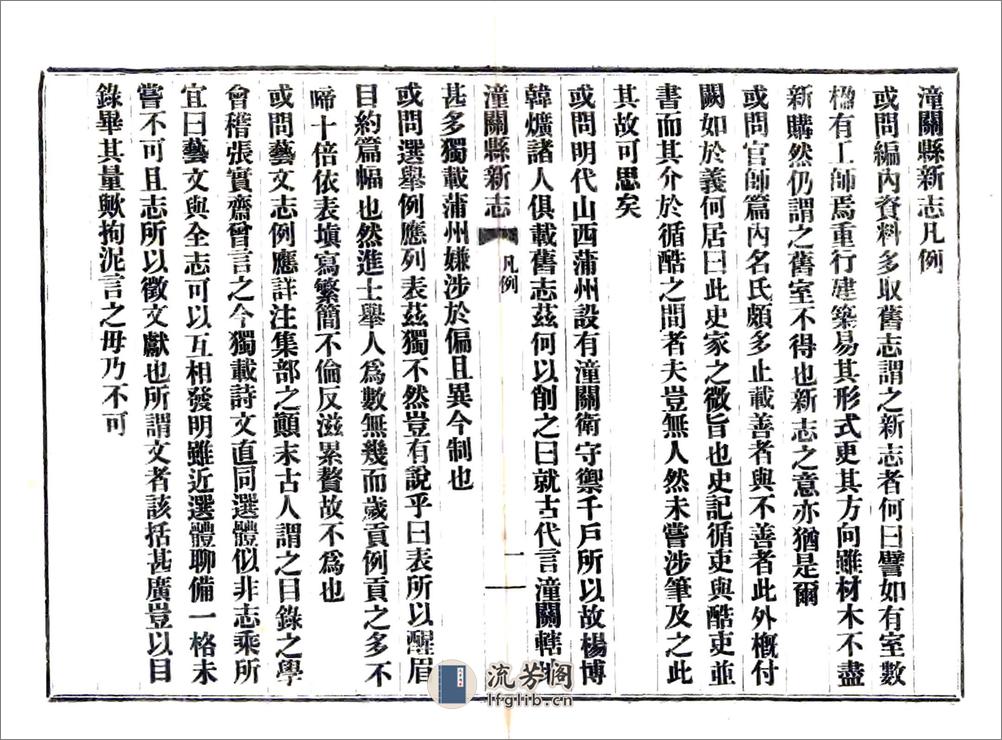 潼關縣新志凡例
或問編內資料多取舊志謂之新志者何曰譬如有室數
楹有工師焉重行建築易其形式更其方向雖材木不盡
新購然仍謂之舊室不得也新志之意亦猶是爾
或問官師篇內名氏頗多止載善者與不善者此外槪付
闕如於義何居曰此史家之微旨也史記循吏與酷吏並
書而其介於循酷之間者夫豈無人然未嘗涉筆及之此
其故可思矣
或問明代山西蒲州設有潼關衛守禦千戶所以故楊博
韓爌諸人俱載舊志茲何以削之曰就古代言潼關轄
潼關縣新志 凡例 一
甚多獨載蒲州嫌涉於偏且異今制也
或問選舉例應列表茲獨不然豈有說乎曰表所以醒眉
目約篇幅也然進士舉人爲數無幾而歲貢例貢之多不
啻十倍依表塡寫繁簡不倫反滋累贅故不爲也
或問藝文志例應詳注集部之顚末古人謂之目錄之學
會稽張實齋曾言之今獨載詩文直同選體似非志乘所
宜曰藝文與全志可以互相發明雖近選體聊備一格未
嘗不可且志所以徵文獻也所謂文者該括甚廣豈以目
錄畢其量歟拘泥言之毋乃不可
流芳閣
lfglib.cn